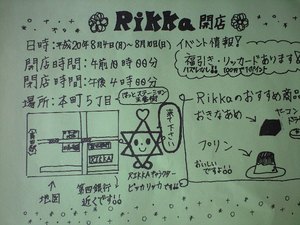 Rikka 開店
日時:平成20年8月4日(月)~8月10日(日)
開店時間:午前10時00分
閉店時間:午後4時00分
場所:本町5丁目
イベント情報!
福引き・リッカードあります
来て下さい
Rikkaのおすすめ商品
おさなあめ
プリン
おいしいですよ!!
RIKKAキャラクター
ピッカリッカです
地図
第四銀行
近くですよ